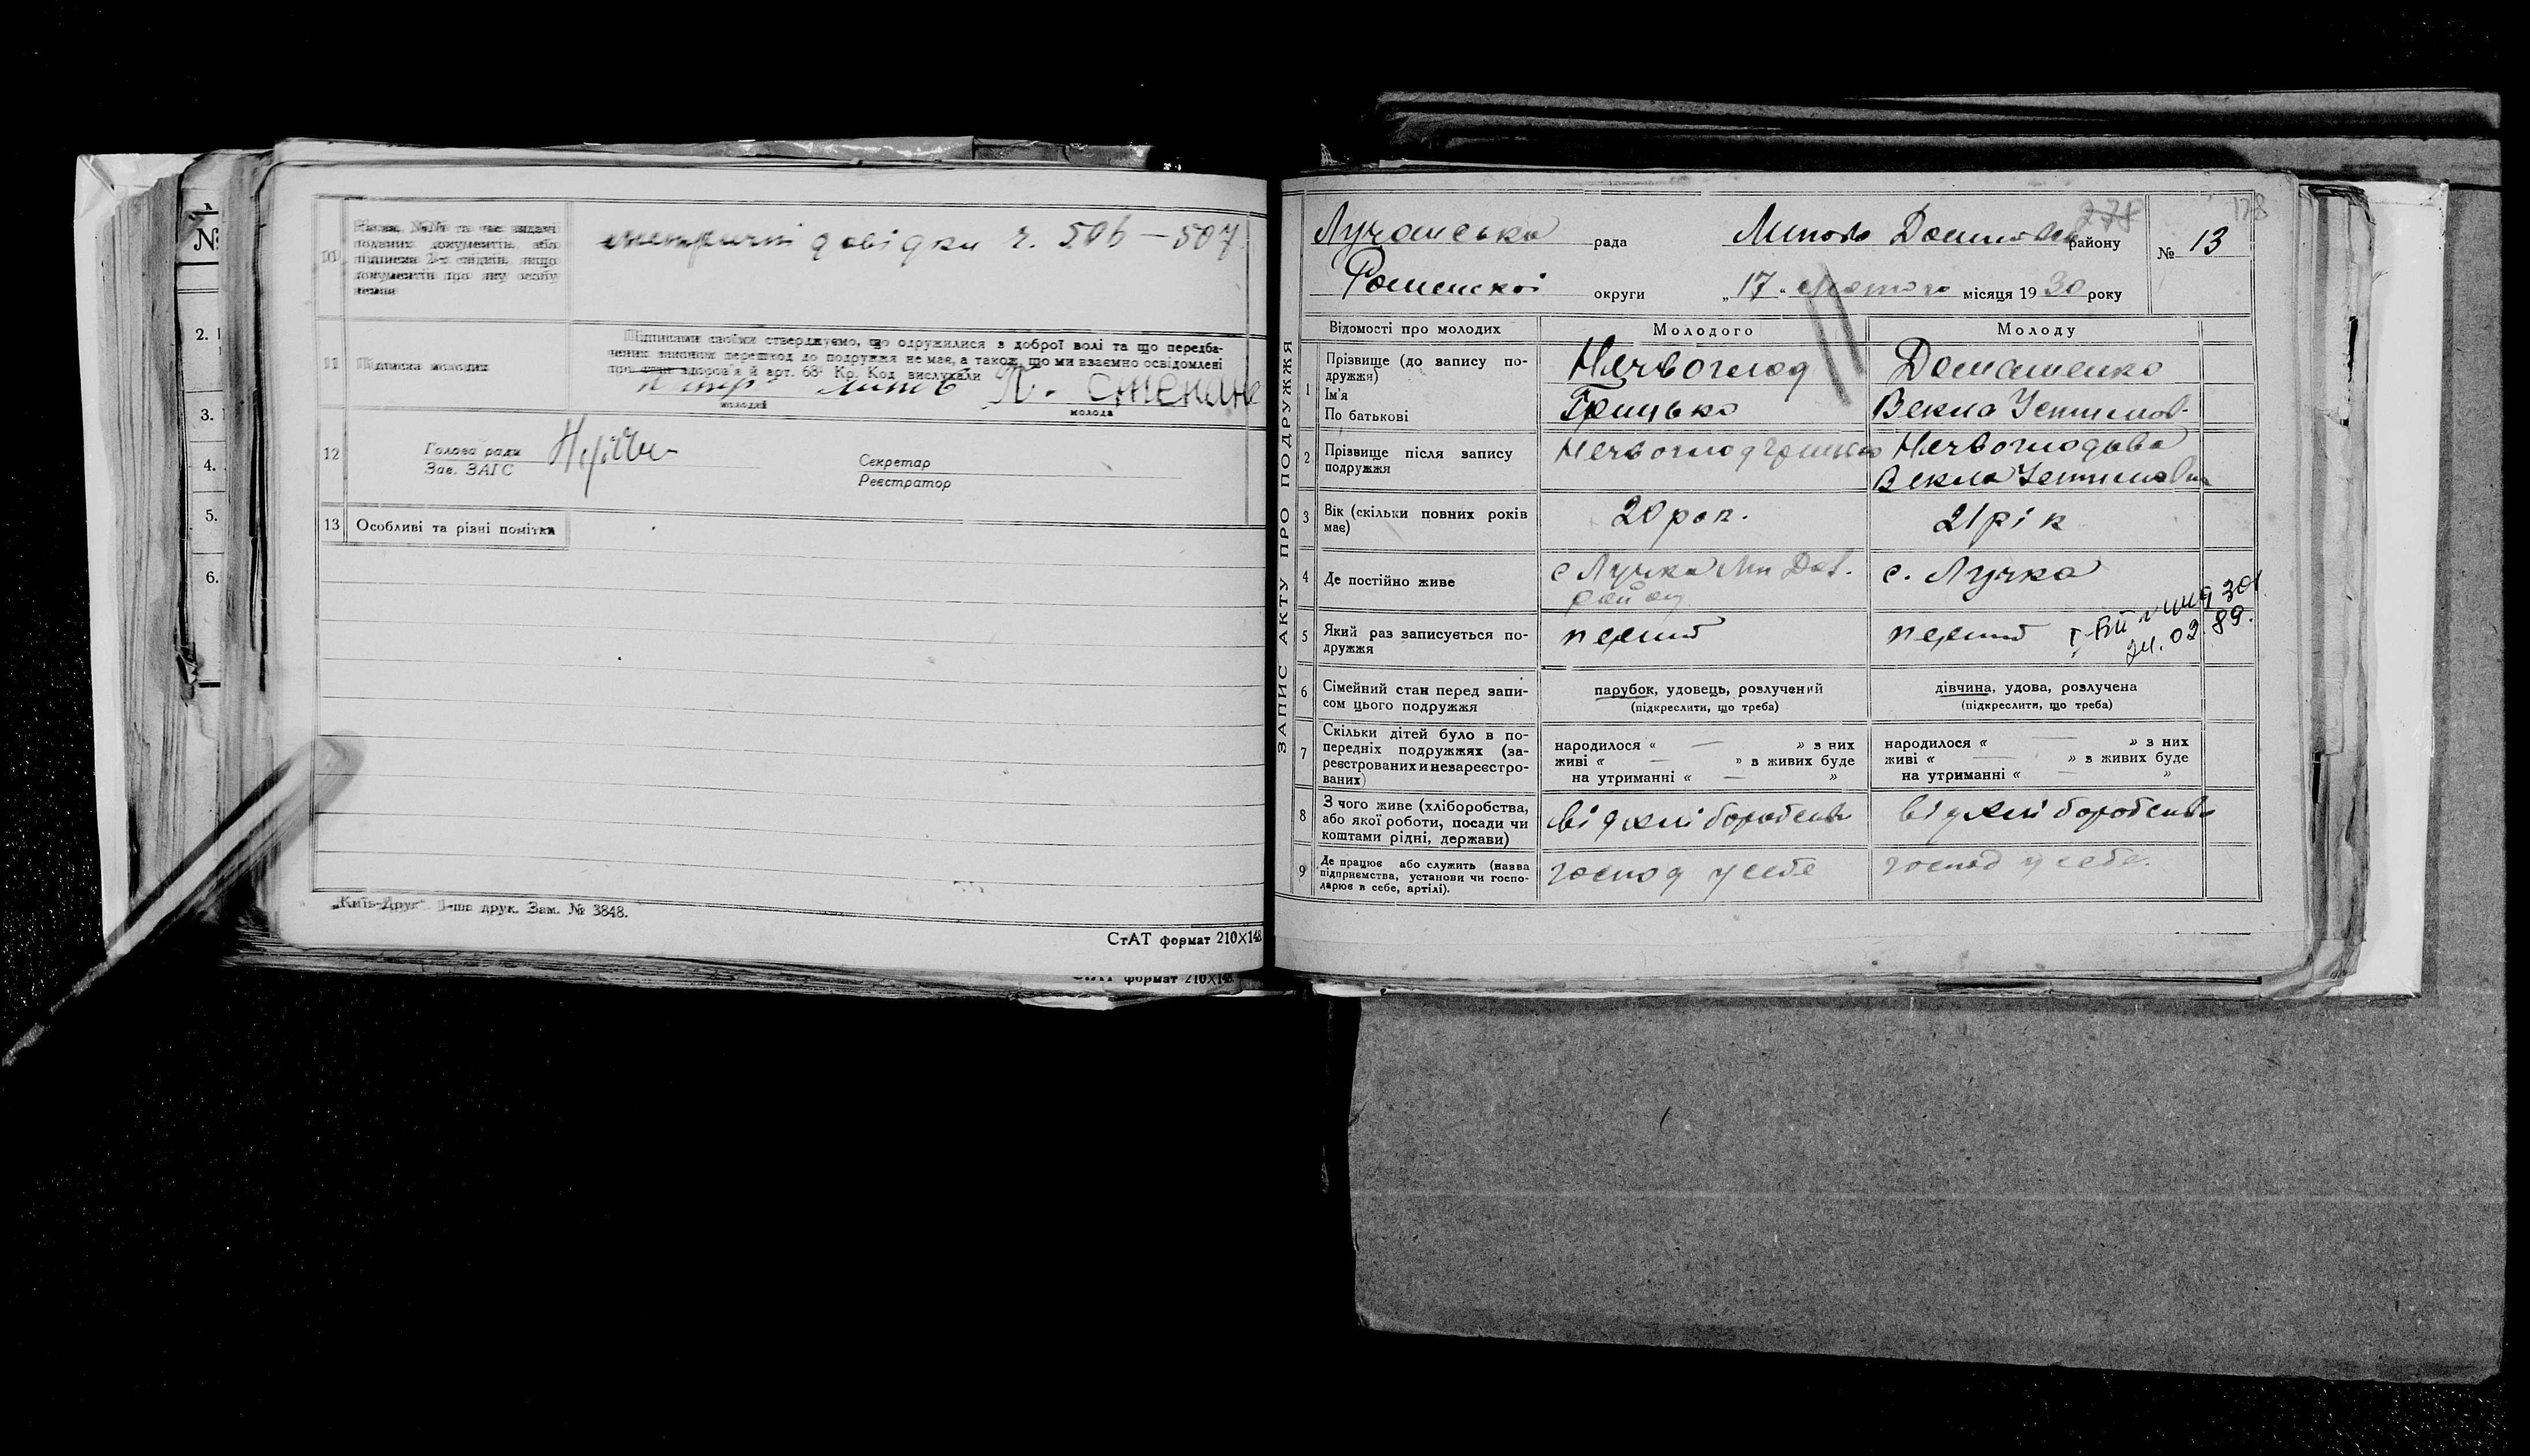 №
2.
3.
4.
5.
6.
10 Назва, №№ та час видачі
поданих документів, або
підписка 2-х свідків, якщо
документів про яку особу
немає
метричні довідки ч. 506 — 507
11 Підписи молодих
Підписами своїми стверджуємо, що одружилися з доброї волі та що передба-
чених законом перешкод до подружжя не має, а також, що ми взаємно освідомлені
про стан здоров'я й арт. 68¹ Кр. Код вислухали
молодий
молода
12 Голова ради
Зав. ЗАГС
Секретар
Реєстратор
13 Особливі та різні помітки
„Київ-Друк“. 1-ша друк. Зам. № 3848.
СтАТ формат 210×148
формат 210×148
ЗАПИС АКТУ ПРО ПОДРУЖЖЯ
278 178
Лучанська рада Липово Долинсько району № 13
Роменської округи „17“ лютого місяця 1930 року
Відомості про молодих Молодого Молоду
1 Прізвище (до запису по-
дружжя)
Ім'я
По батькові
Нечвоглод
Грицько
Домашенко
Векла Устимов-
2 Прізвище після запису
подружжя
Нечвоглод Грицько
Нечвоглодова
Векла Устимовна
3 Вік (скільки повних років
має)
20 рок.
21 рік
4 Де постійно живе
с Лучка Лип Дол.
район
с. Лучка
5 Який раз записується по-
дружжя
перший
перший
24. 02. 89.
6 Сімейний стан перед запи-
сом цього подружжя
парубок, удовець, розлучений
(підкреслити, що треба)
дівчина, удова, розлучена
(підкреслити, що треба)
7 Скільки дітей було в по-
передніх подружжях (за-
реєстрованих и незареєстро-
ваних)
народилося « — » з них
живі « — » з живих буде
на утриманні « — »
народилося « — » з них
живі « — » з живих буде
на утриманні « — »
8 З чого живе (хліборобства,
або якої роботи, посади чи
коштами рідні, держави)
від хліборобства
від хліборобства
9 Де працює або служить (назва
підприємства, установи чи госпо-
дарює в себе, артілі).
господ у себе
господ у себе.